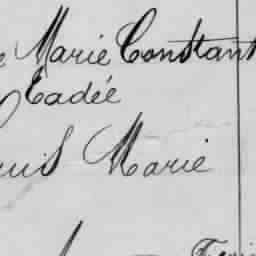 Marie Constant
Eadée
uis Marie